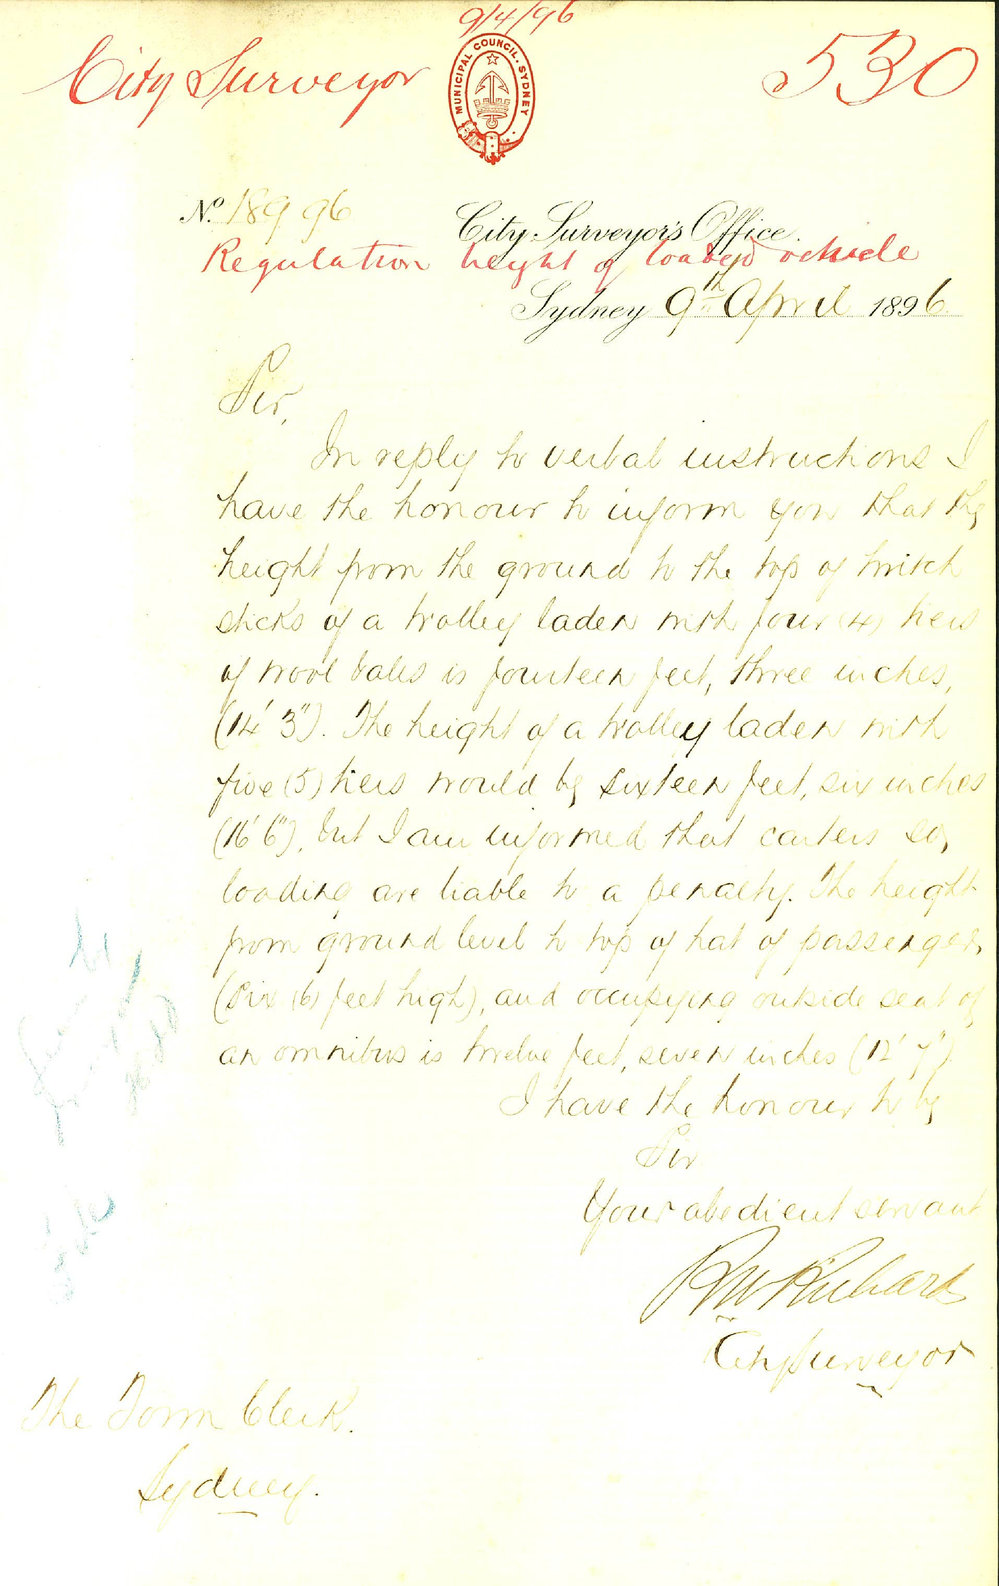 9/4/96
City Surveyor
MUNICIPAL COUNCIL. SYDNEY
530
No. 189 96
City Surveyor's Office.
Regulation height of loaded vehicle
Sydney 9th April 1896
Sir,
In reply to verbal instructions I
have the honour to inform you that the
height from the ground to the top of twitch
sticks of a trolley laden with four (4) tiers
of wool bales is fourteen feet, three inches,
(14' 3"). The height of a trolley laden with
five (5) tiers would be sixteen feet, six inches
(16' 6"), but I am informed that carters so
loading are liable to a penalty. The height
from ground level to top of hat of passenger,
(Six (6) feet high), and occupying outside seat of
an omnibus is twelve feet, seven inches (12' 7")
I have the honour to be
Sir
Your obedient servant
RW Richards
City Surveyor
The Town Clerk.
Sydney.